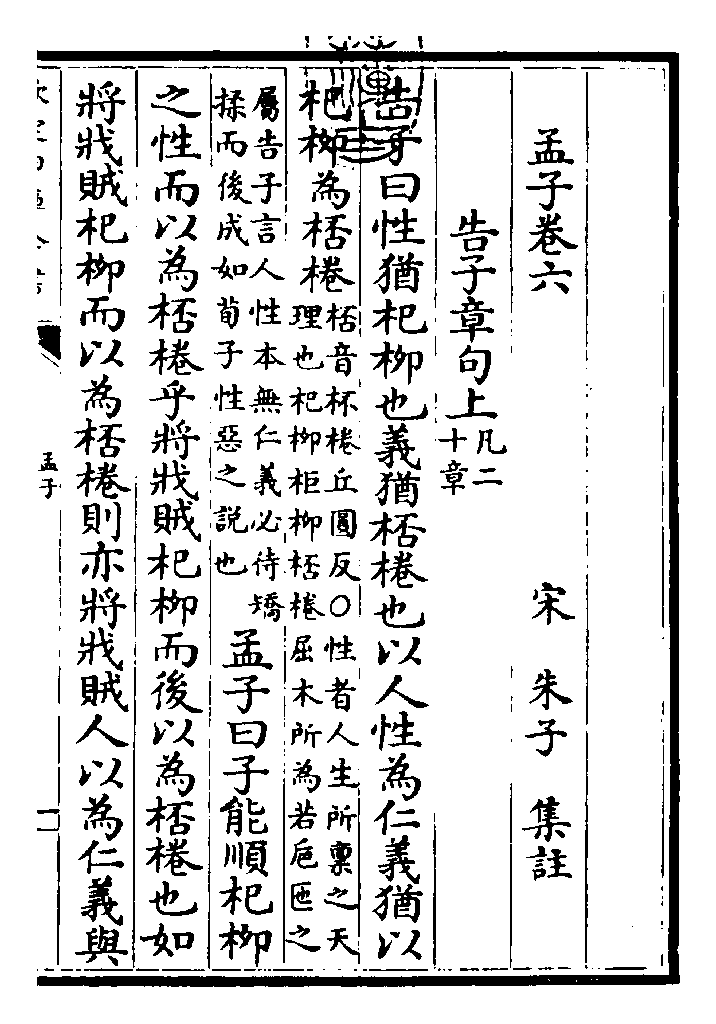 孟子卷六　宋　朱子　集註
告子章句上凡二十章
告子曰性猶杞柳也義猶桮棬也以人性為仁義猶以
杞柳為桮棬桮音杯棬丘圓反○性者人生所稟之天
理也杞柳柜柳桮棬屈木所為若巵匜之
屬告子言人性本無仁義必待矯
揉而後成如荀子性惡之說也孟子曰子能順杞柳
之性而以為桮棬乎將戕賊杞柳而後以為桮棬也如
將戕賊杞柳而以為桮棬則亦將戕賊人以為仁義與
孟子